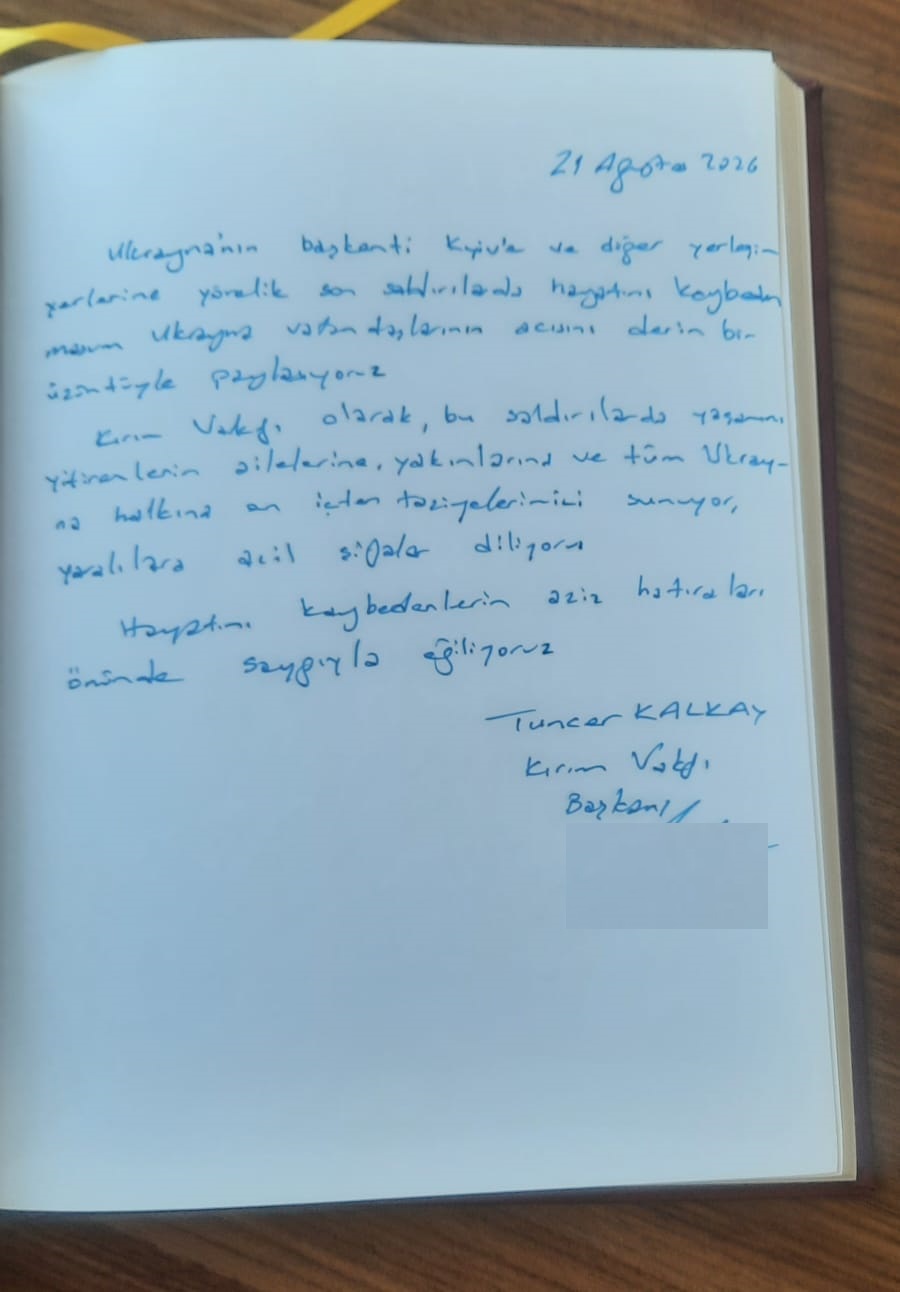 21 Ağustos 2026
Ukrayna'nın başkenti Kyiv'e ve diğer yerleşim
yerlerine yönelik son saldırılarda hayatını kaybeden
masum Ukrayna vatandaşlarının acısını derin bir
üzüntüyle paylaşıyoruz
Kırım Vakfı olarak, bu saldırılarda yaşamını
yitirenlerin ailelerine, yakınlarına ve tüm Ukray-
na halkına en içten taziyelerimizi sunuyor,
yaralılara acil şifalar diliyoruz
Hayatını kaybedenlerin aziz hatıraları
önünde saygıyla eğiliyoruz
Tuncer KALKAY
Kırım Vakfı
Başkanı